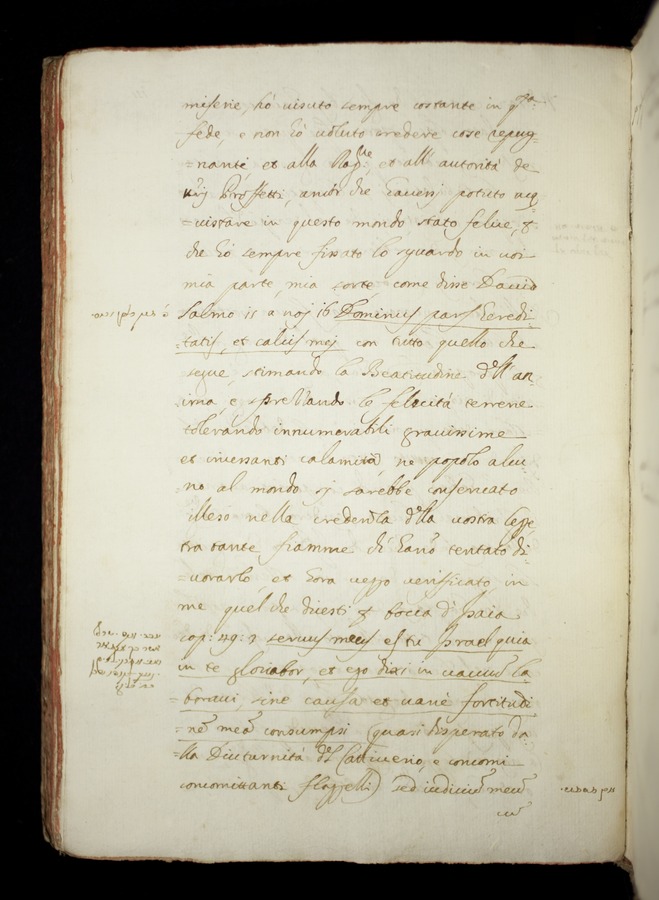 miserie, hò uisuto sempre costante in q.ta
fede, e non hò uoluto credere cose repug-
=nanti et alla Rag.ne, et all' autorità de
Proffetti, ancor che hauerej potuto acq
=uistare in questo mondo stato felice, &
che hò sempre fissato lo sguardo in uoi
mia parte, mia sorte come disse Dauid
Salmo 15 a noj 16 Dominus pars heredi
=tatis, et calicis mej con tutto quello che
segue, stimando la Beatitudine dell' an
ima, e sprezzando le felicità terrene
tolerando innumerabili grauissime
et incessanti calamità, ne popolo alcu
no al mondo si sarebbe conseruato
illeso nella credenza della uostra legge
tra tante fiamme ch' hano tentato di
=uorarlo, et hora ueggo uerificato in
me quel che dicesti & bocca d' Isaia
cap: 49: 3 seruus meus es tu Israel quia
in te gloriabor, et ego dixi in uacuum la
=boraui, sine causa et uanè fortitudi
=nem meam consumpsi (quasi disperato da
=lla Diuturnità del Cattiuerio, e
concomittanti flaggelli) sed iudicium meum